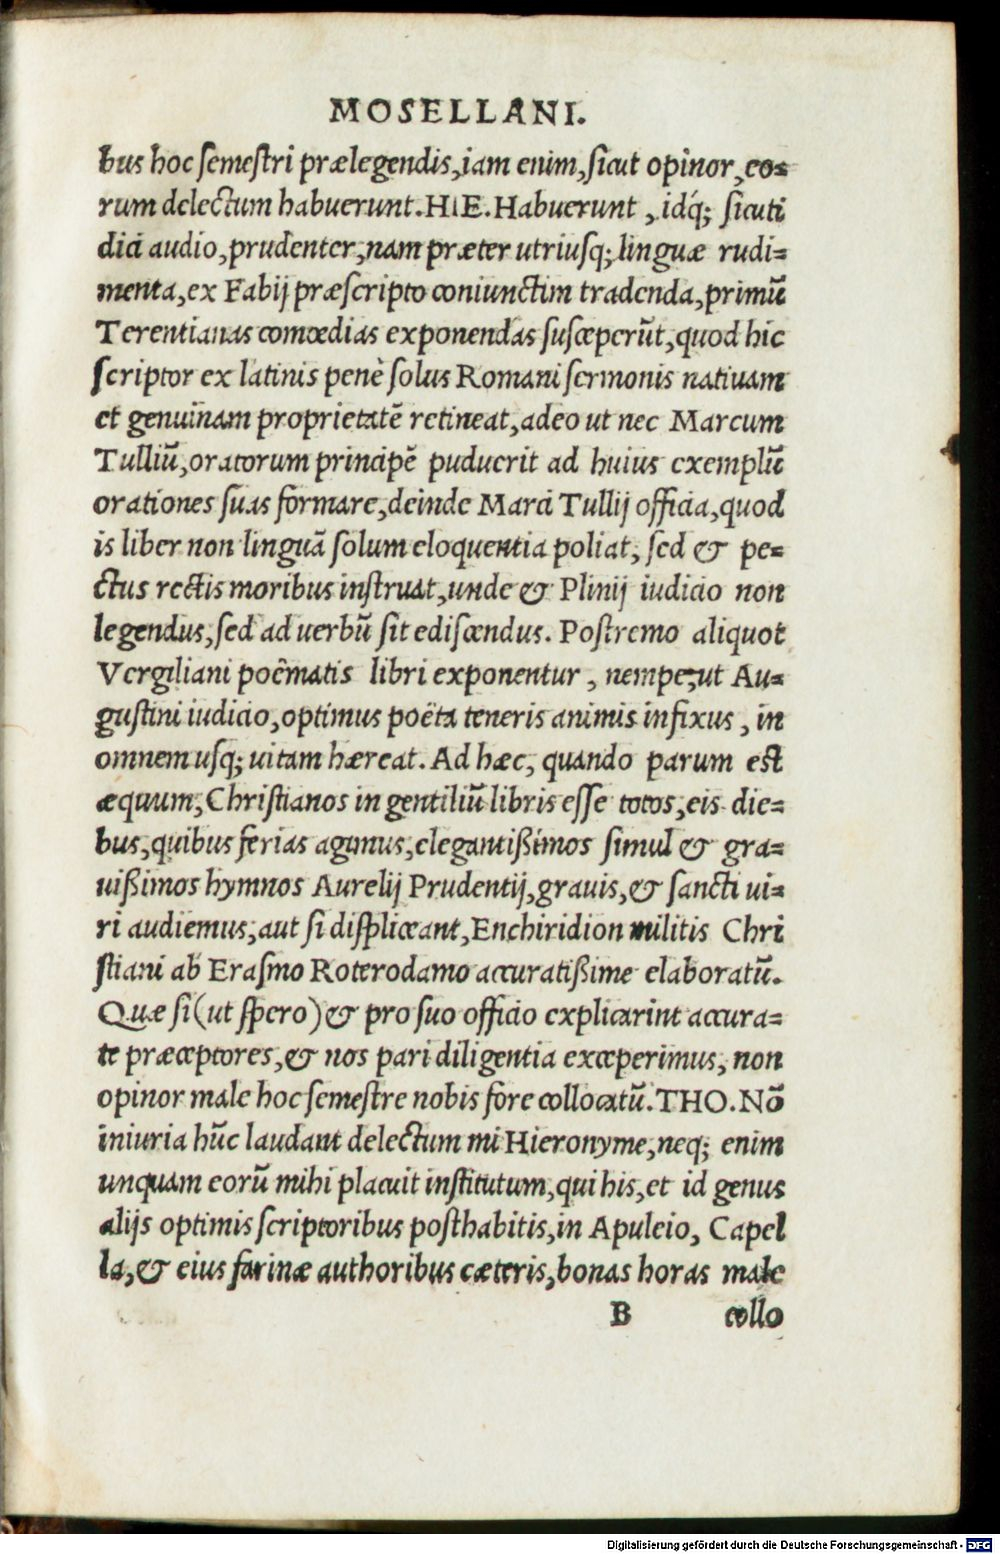 MOSELLANI.
bus hoc ſemeſtri prælegendis, iam enim, ſicut opinor, eo=
rum delectum habuerunt. HIE. Habuerunt, idq́; ſicuti
dici audio, prudenter, nam præter utriuſq; linguæ rudi=
menta, ex Fabij præſcripto coniunctim tradenda, primũ
Terentianas comœdias exponendas ſuſceperũt, quod hic
ſcriptor ex latinis penè ſolus Romani ſermonis natiuam
et genuinam proprietatẽ retineat, adeo ut nec Marcum
Tulliũ, oratorum principẽ puduerit ad huius exemplũ
orationes ſuas formare, deinde Marci Tullij officia, quod
is liber non linguã ſolum eloquentia poliat, ſed & pe=
ctus rectis moribus inſtruat, unde & Plinij iudicio non
legendus, ſed ad uerbũ ſit ediſcendus. Poſtremo aliquot
Vergiliani poëmatis libri exponentur, nempe, ut Au=
guſtini iudicio, optimus poëta teneris animis infixus, in
omnem uſq; uitam hæreat. Ad hæc, quando parum eſt
æquum, Chriſtianos in gentiliũ libris eſſe totos, eis die=
bus, quibus ferias agimus, elegantißimos ſimul & gra=
uißimos hymnos Aurelij Prudentij, grauis, & ſancti ui=
ri audiemus, aut ſi diſpliceant, Enchiridion militis Chri
ſtiani ab Eraſmo Roterodamo accuratißime elaboratũ.
Quæ ſi (ut ſpero) & pro ſuo officio explicarint accura=
te præceptores, & nos pari diligentia exceperimus, non
opinor male hoc ſemeſtre nobis fore collocatũ. THO. Nõ
iniuria hũc laudant delectum mi Hieronyme, neq; enim
unquam eorũ mihi placuit inſtitutum, qui his, et id genus
alijs optimis ſcriptoribus poſthabitis, in Apuleio, Capel
la, & eius farinæ authoribus cæteris, bonas horas male
B collo
Digitalisierung gefördert durch die Deutsche Forschungsgemeinschaft - DFG